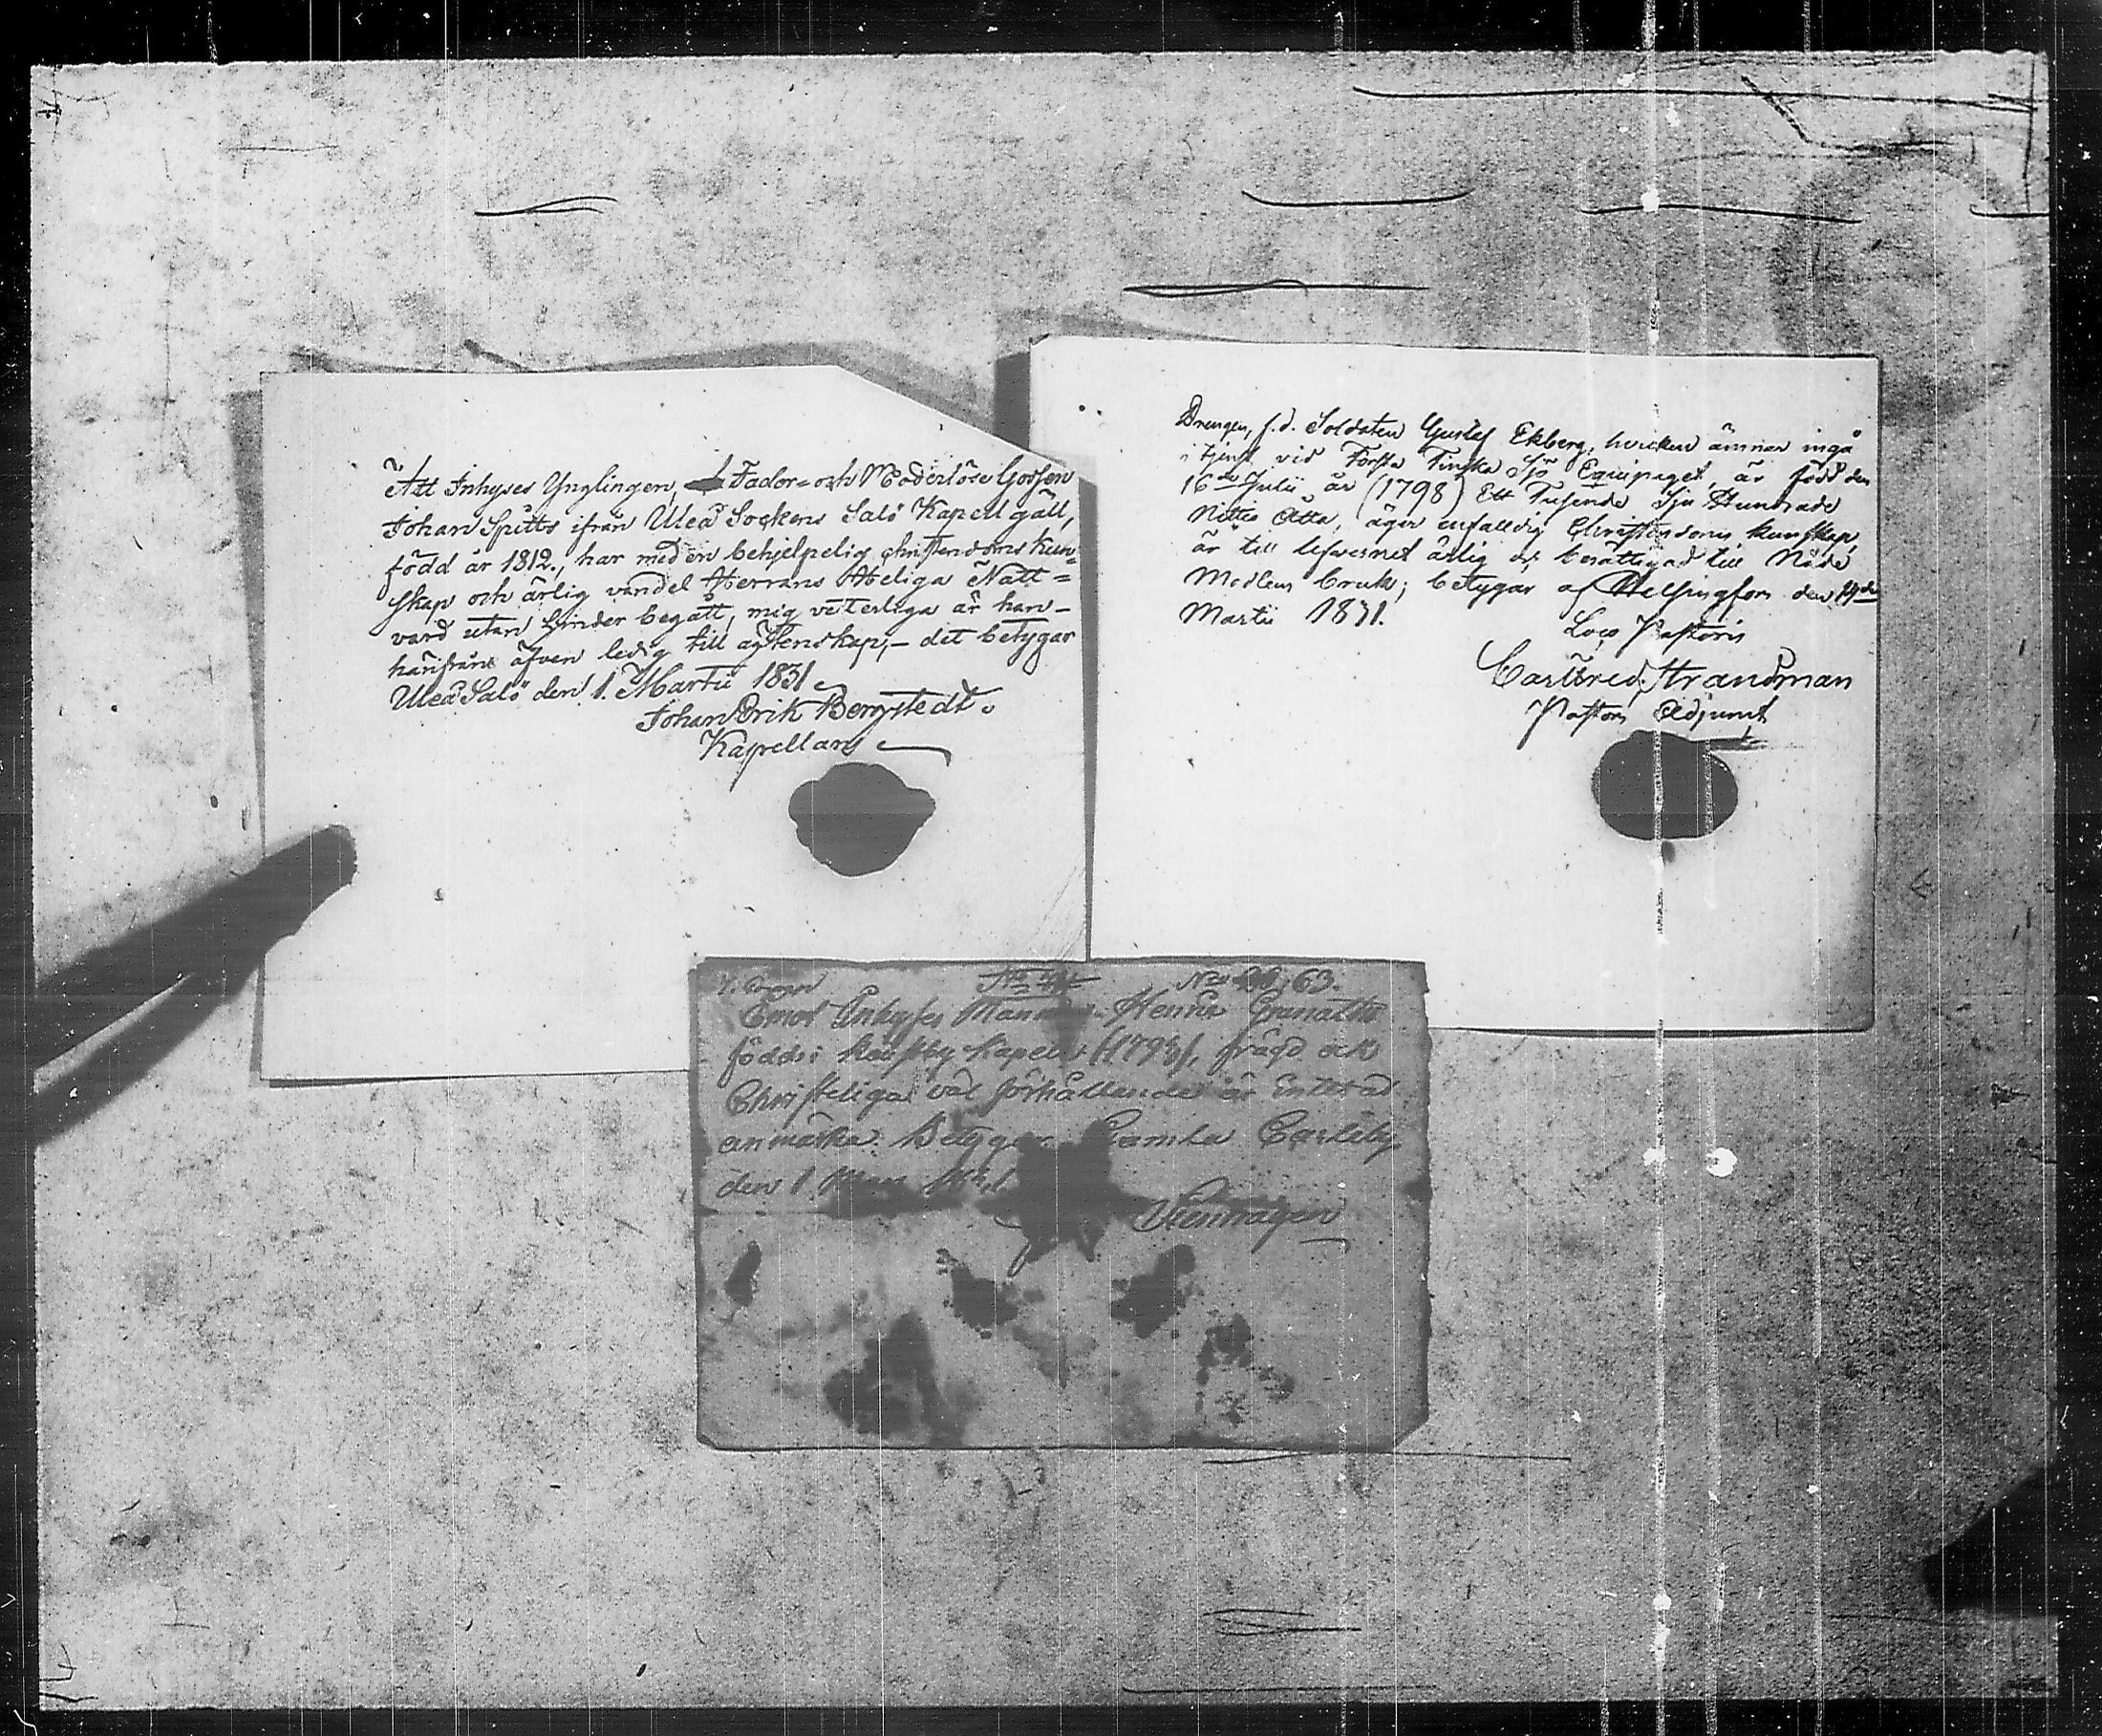 Att Inhyses Ynglingen, Fader- och Moderlöse Gossen
Johan Spitts ifrån Uleå Sockens Salö Kapell gäll,
född år 1812., har med en behjelpelig christendoms kun-
skap och ärlig vandel Herrans Heliga Natt=
vard utan hinder begått, mig veterliga är han-
härifrån äfven ledig till äktenskap,- det betygar
Uleå Salö den 1. Martii 1831
Johan Erik Bergstedt.
Kapellan
Drengen, f.d. Soldaten Gustaf Ekberg, hvilken ämnar ingå
i tjenst vid Första Finska Sjö Equipaget, är född den
16de Julii år (1798) Ett Tusende Sju Hundrade
Nittio Åtta, äger enfaldig Christendoms kunskap,
är till lefvernet ärlig och berättigad till Nåde
Medlens bruk; betygar af Helsingfors den 19de
Martii 1831.
Loco Pastoris
Carl Fred. Strandman
Pastors Adjunct
No 63.
Emot Inhyses Mannen Henric Granath
född i Kaustby Kapell, frägd och
Christeliga väl förhållande är intet at
anmärka. Betygar Gamla Carleby
den 1.